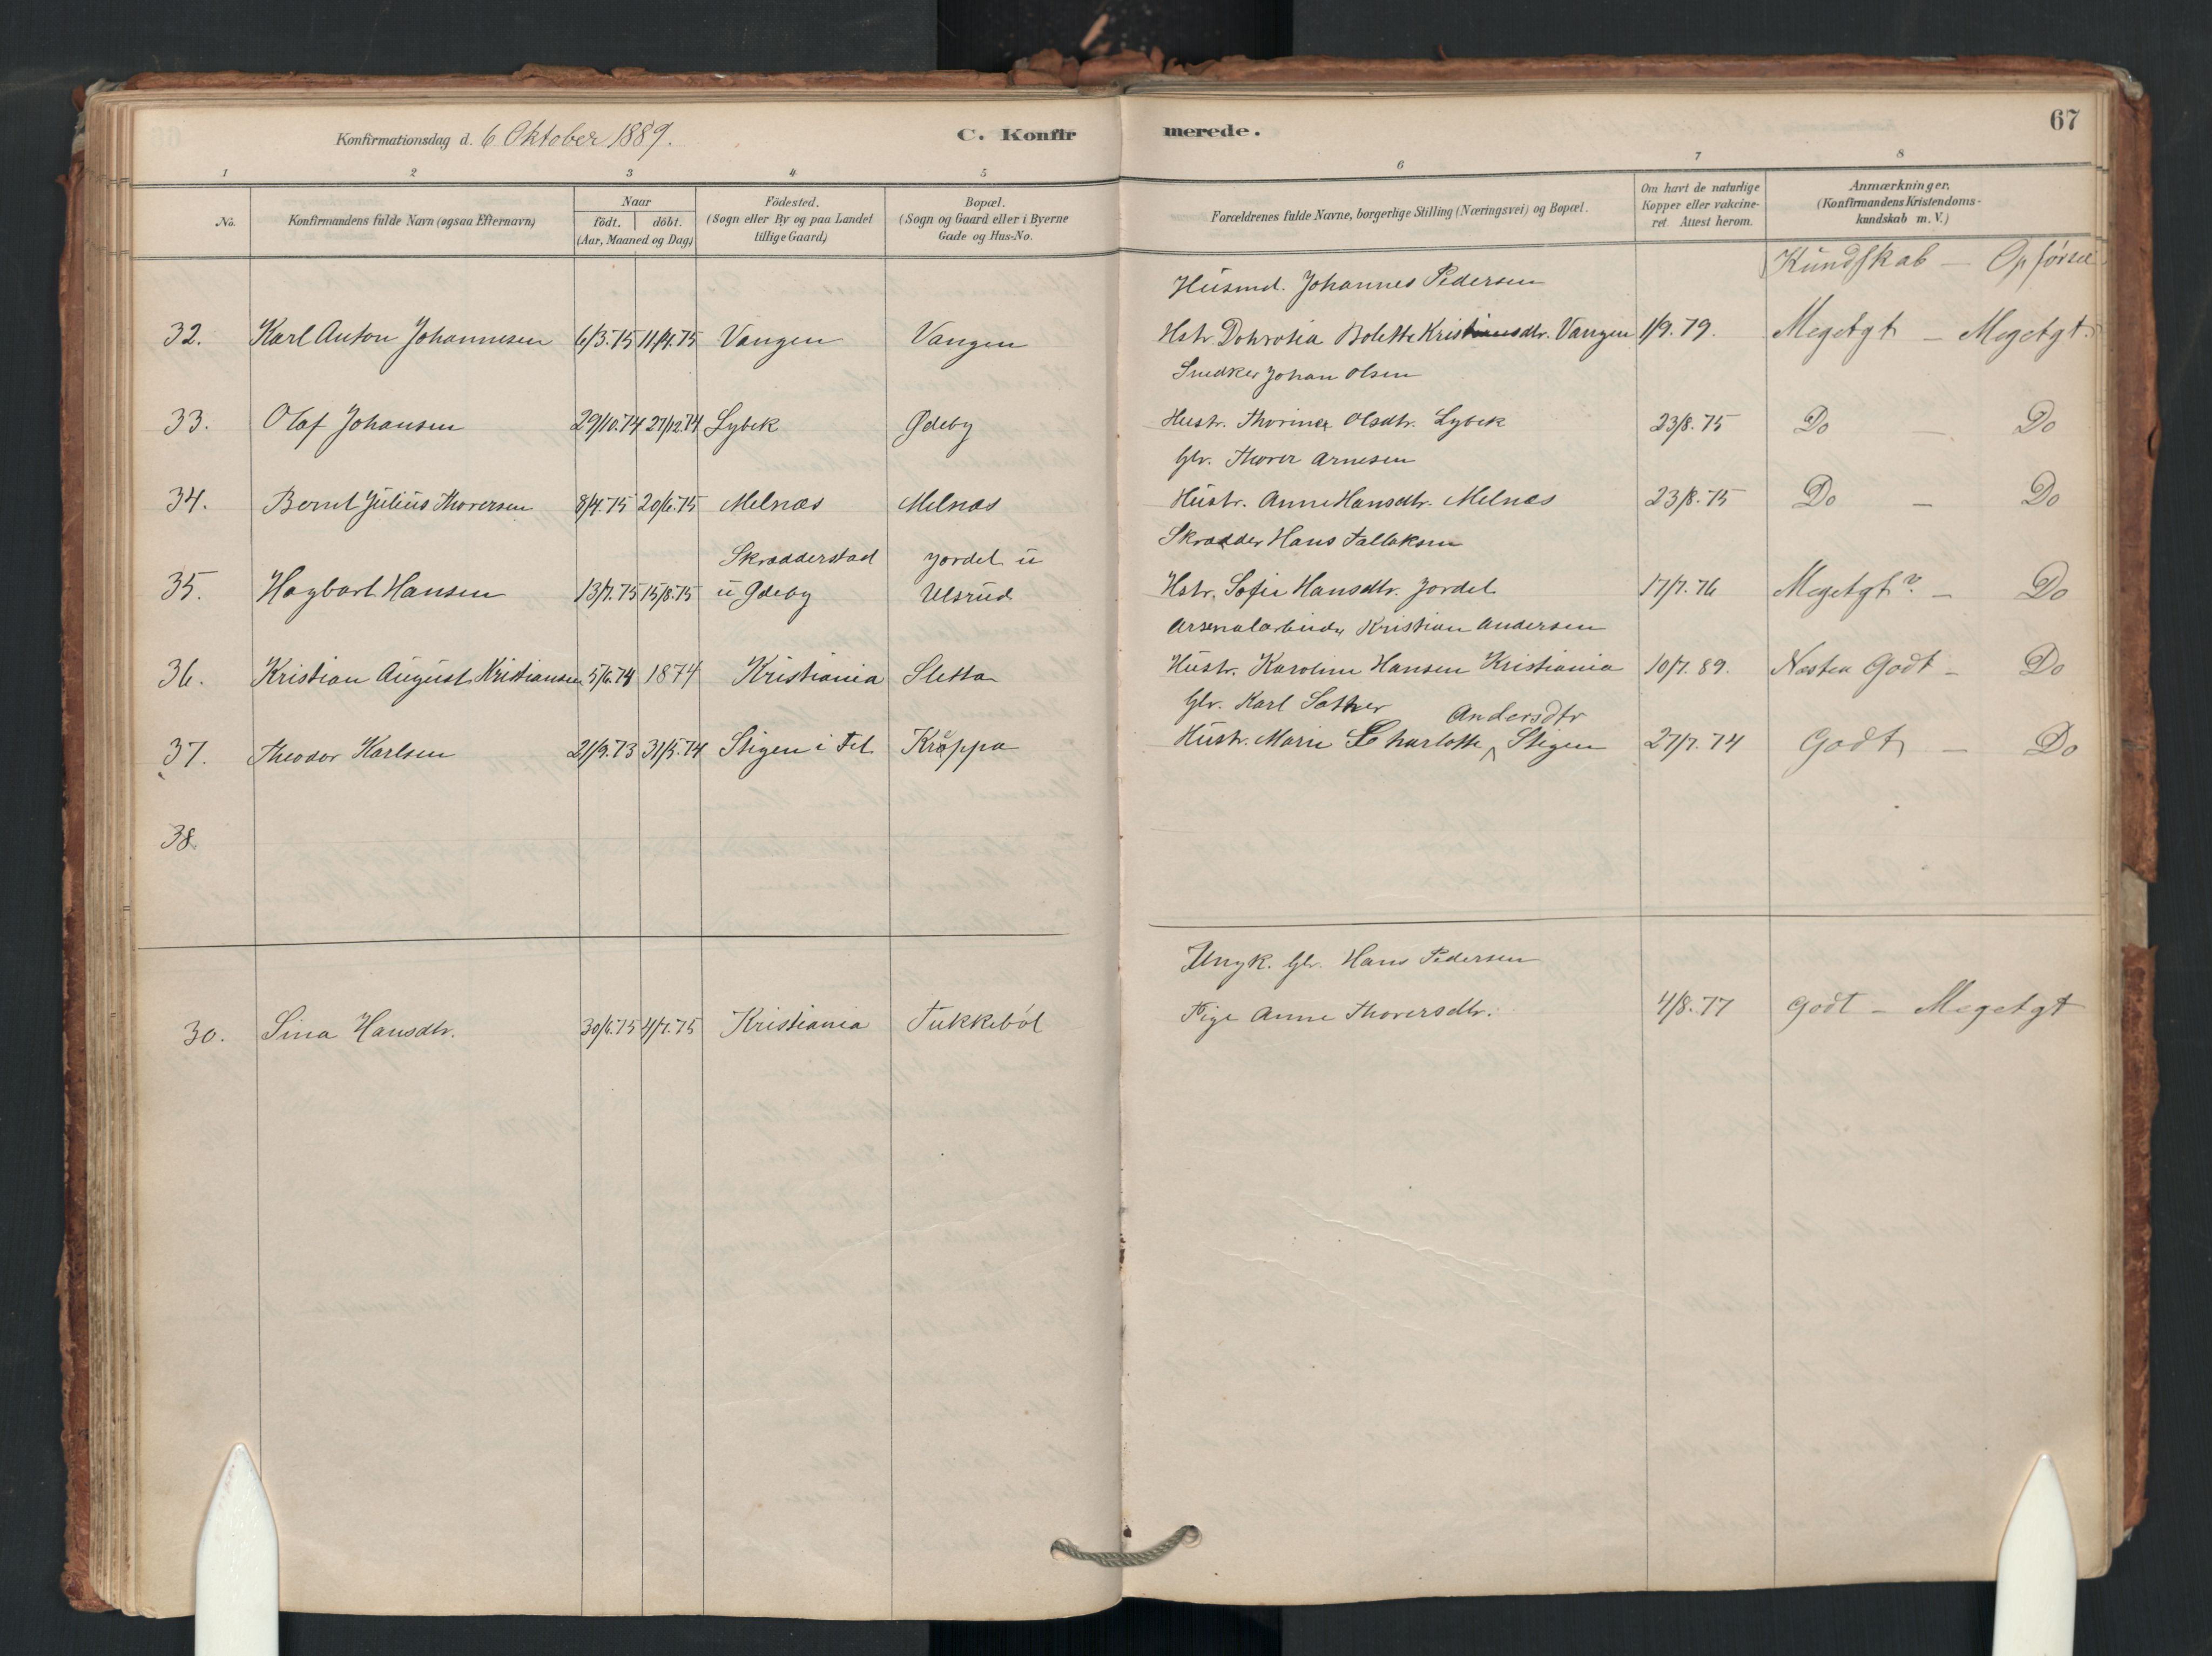 Konfirmationsdag d. 6 Oktober 1889. C. Konfirmerede. 67
1 2 3 4 5 6 7 8
No. Konfirmandens fulde Navn (ogsaa Efternavn) Naar födt. döbt. (Aar, Maaned og Dag) Födested. (Sogn eller By og paa Landet tillige Gaard) Bopæl. (Sogn og Gaard eller i Byerne Gade og Hus-No. Forældrenes fulde Navne, borgerlige Stilling (Næringsvei) og Bopæl. Om havt de naturlige Kopper eller vakcineret. Attest herom. Anmærkninger. (Konfirmandens Kristendomskundskab m. V.)
Kundskab – Opførsel
Husmd. Johannes Pedersen
32. Karl Anton Johannesen 6/3.75 11/4.75 Vangen Vangen Hstr. Dohrotia Bolette Kristiansdtr. Vangen 1/9.79. Megetgt – Megetgt.
Snedker Johan Olsen
33. Olaf Johansen 29/10.74 27/12.74 Lybek Ødeby Hustr. Thorine Olsdtr. Lybek 23/8.75 Do – Do
Gbr. Thorer Arnesen
34. Bernt Julius Thoresen 8/4.75 20/6.75 Melnæs Melnæs Hustr. Anne Hansdtr. Melnæs 23/8.75 Do – Do
Skrædder Hans Falleksen
35. Hagbart Hansen 13/7.75 15/8.75 Skradderstad u Ødeby Jordet u Ulsrud Hstr. Sofie Hansdtr. Jordet 17/7.76 Megetgt? – Do
Arsenalarbeider Kristian Andersen
36. Kristian August Kristiansen 5/6.74 1874 Kristiania Sletta Hustr. Karoline Hansen Kristiania 10/7.89. Næsten Godt – Do
Gbr. Karl Sather Andersdtr
37. Theodor Karlsen 21/9.73 31/5.74 Stigen i Fet Krøppa Hustr. Marie Charlotte Stigen 27/7.74 Godt – Do
38.
Ungk. Gbr. Hans Pedersen
30. Sina Hansdtr. 30/5.75 4/7.75 Kristiania Tukkebøl Pige Anne Thoresdtr. 4/8.77 Godt – Megetgt